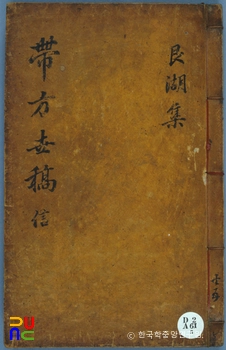 艮湖集
帶方世稿 信
D2
A
5
©한국학중앙연구원